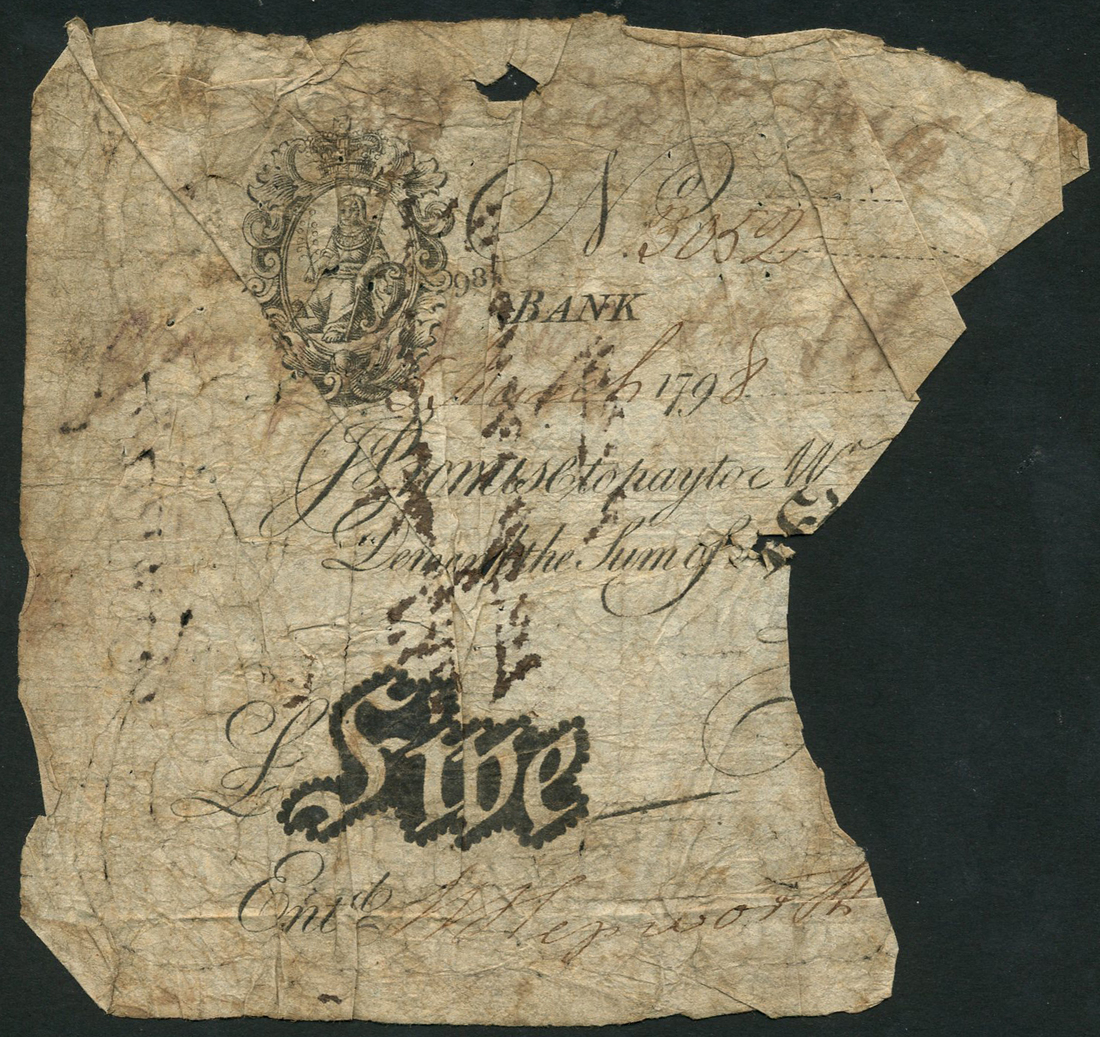 No. 3052
98
BANK
March 1798
I Promise to pay to Mr
Demand the Sum of
£ Five
Entd W Hepworth